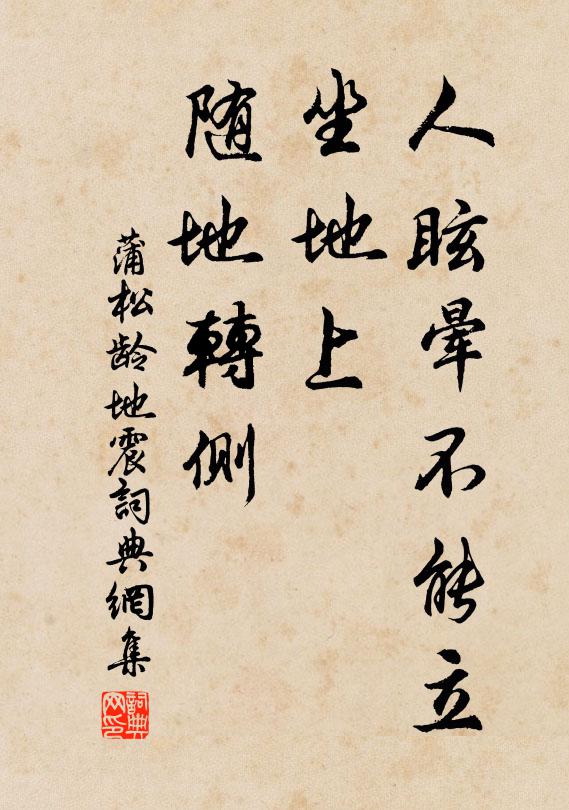 人眩暈不能立
坐地上
随地轉側
蒲松龄地震詞典網集
詞典网印